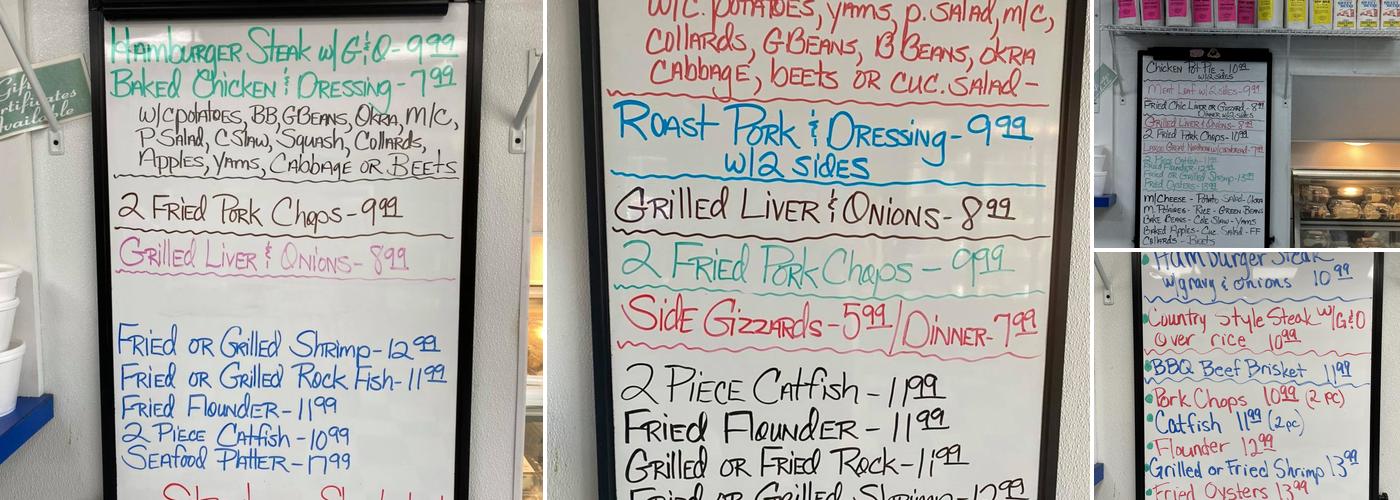 Gift
Certificates
Available
Hamburger Steak w/ G & O - 9 99
Baked Chicken & Dressing - 7 99
w/ C potatoes, BB, G Beans, Okra, M/C,
P. Salad, C Slaw, Squash, Collards,
Apples, Yams, Cabbage or Beets
2 Fried Pork Chops - 9 99
Grilled Liver & Onions - 8 99
Fried or Grilled Shrimp - 12 99
Fried or Grilled Rock Fish - 11 99
Fried Flounder - 11 99
2 Piece Catfish - 10 99
Seafood Platter - 17 99
w/ C. Potatoes, yams, p. salad, m/c,
Collards, G Beans, B Beans, okra
Cabbage, beets or cuc. salad -
Roast Pork & Dressing - 9 99
w/ 2 sides
Grilled Liver & Onions - 8 99
2 Fried Pork Chops - 9 99
Side Gizzards - 5 99 / Dinner - 7 99
2 Piece Catfish - 11 99
Fried Flounder - 11 99
Grilled or Fried Rock - 11 99
Fried or Grilled Shrimp - 12 99
Chicken Pot Pie - 10 99
w/ 2 sides
Meat Loaf w/ 2 sides - 9 99
Fried Chic. Liver or Gizzard - 8 99
Dinner w/ 2 sides
Grilled Liver & Onions - 8 99
2 Fried Pork Chops - 10 99
Large Great Northern w/ cornbread - 7 99
2 Piece Catfish - 11 99
Fried Flounder - 12 99
Fried or Grilled Shrimp - 13 99
Fried Oysters - 13 99
M/Cheese - Potato Salad - Okra
M. Potatoes - Rice - Green Beans
Bake Beans - Cole Slaw - Yams
Baked Apples - Cuc. Salad - FF
Collards - Beets
Hamburger Steak
w/gravy & onions 10 99
Country Style Steak w/ G & O
Over rice 10 99
BBQ Beef Brisket 11 99
Pork Chops 10 99 (2 pc)
Catfish 11 99 (2 pc)
Flounder 12 99
Grilled or Fried Shrimp 13 99
Fried Oysters 13 99